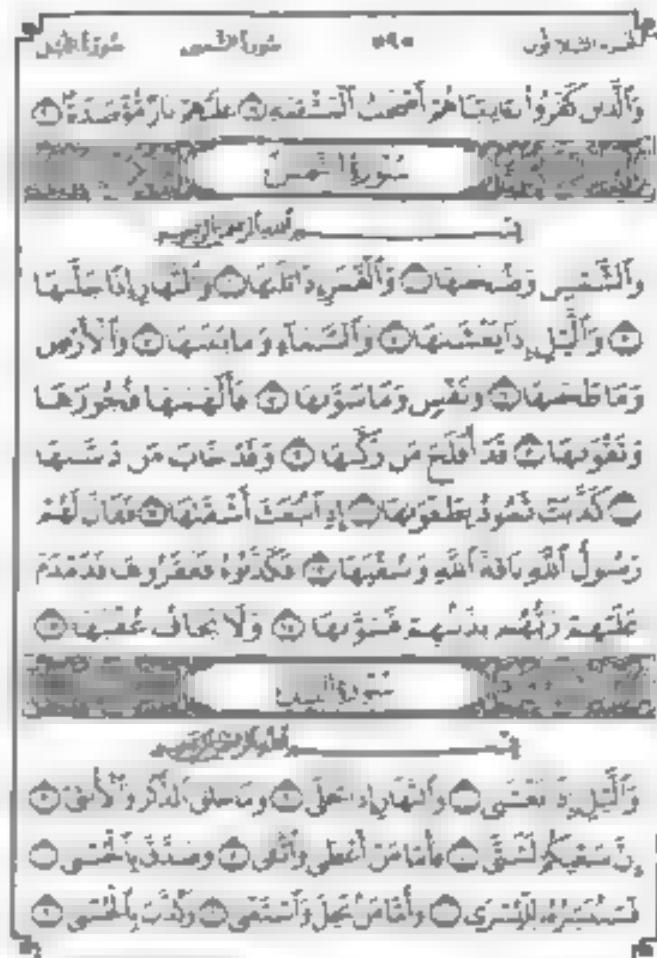 الجزء الثلاثون سورة الشمس سورة الليل
وَٱلَّذِينَ كَفَرُوا۟ بِـَٔايَـٰتِنَا هُمْ أَصْحَـٰبُ ٱلْمَشْـَٔمَةِ ١٩ عَلَيْهِمْ نَارٌ مُّؤْصَدَةٌۢ ٢٠
سُورَةُ الشَّمْسِ
بِسْمِ ٱللَّهِ ٱلرَّحْمَـٰنِ ٱلرَّحِيمِ
وَٱلشَّمْسِ وَضُحَىٰهَا ١ وَٱلْقَمَرِ إِذَا تَلَىٰهَا ٢ وَٱلنَّهَارِ إِذَا جَلَّىٰهَا
٣ وَٱلَّيْلِ إِذَا يَغْشَىٰهَا ٤ وَٱلسَّمَآءِ وَمَا بَنَىٰهَا ٥ وَٱلْأَرْضِ
وَمَا طَحَىٰهَا ٦ وَنَفْسٍ وَمَا سَوَّىٰهَا ٧ فَأَلْهَمَهَا فُجُورَهَا
وَتَقْوَىٰهَا ٨ قَدْ أَفْلَحَ مَن زَكَّىٰهَا ٩ وَقَدْ خَابَ مَن دَسَّىٰهَا
١٠ كَذَّبَتْ ثَمُودُ بِطَغْوَىٰهَآ ١١ إِذِ ٱنۢبَعَثَ أَشْقَىٰهَا ١٢ فَقَالَ لَهُمْ
رَسُولُ ٱللَّهِ نَاقَةَ ٱللَّهِ وَسُقْيَـٰهَا ١٣ فَكَذَّبُوهُ فَعَقَرُوهَا فَدَمْدَمَ
عَلَيْهِمْ رَبُّهُم بِذَنۢبِهِمْ فَسَوَّىٰهَا ١٤ وَلَا يَخَافُ عُقْبَـٰهَا ١٥
سُورَةُ اللَّيْلِ
بِسْمِ ٱللَّهِ ٱلرَّحْمَـٰنِ ٱلرَّحِيمِ
وَٱلَّيْلِ إِذَا يَغْشَىٰ ١ وَٱلنَّهَارِ إِذَا تَجَلَّىٰ ٢ وَمَا خَلَقَ ٱلذَّكَرَ وَٱلْأُنثَىٰٓ ٣
إِنَّ سَعْيَكُمْ لَشَتَّىٰ ٤ فَأَمَّا مَنْ أَعْطَىٰ وَٱتَّقَىٰ ٥ وَصَدَّقَ بِٱلْحُسْنَىٰ ٦
فَسَنُيَسِّرُهُۥ لِلْيُسْرَىٰ ٧ وَأَمَّا مَنۢ بَخِلَ وَٱسْتَغْنَىٰ ٨ وَكَذَّبَ بِٱلْحُسْنَىٰ ٩